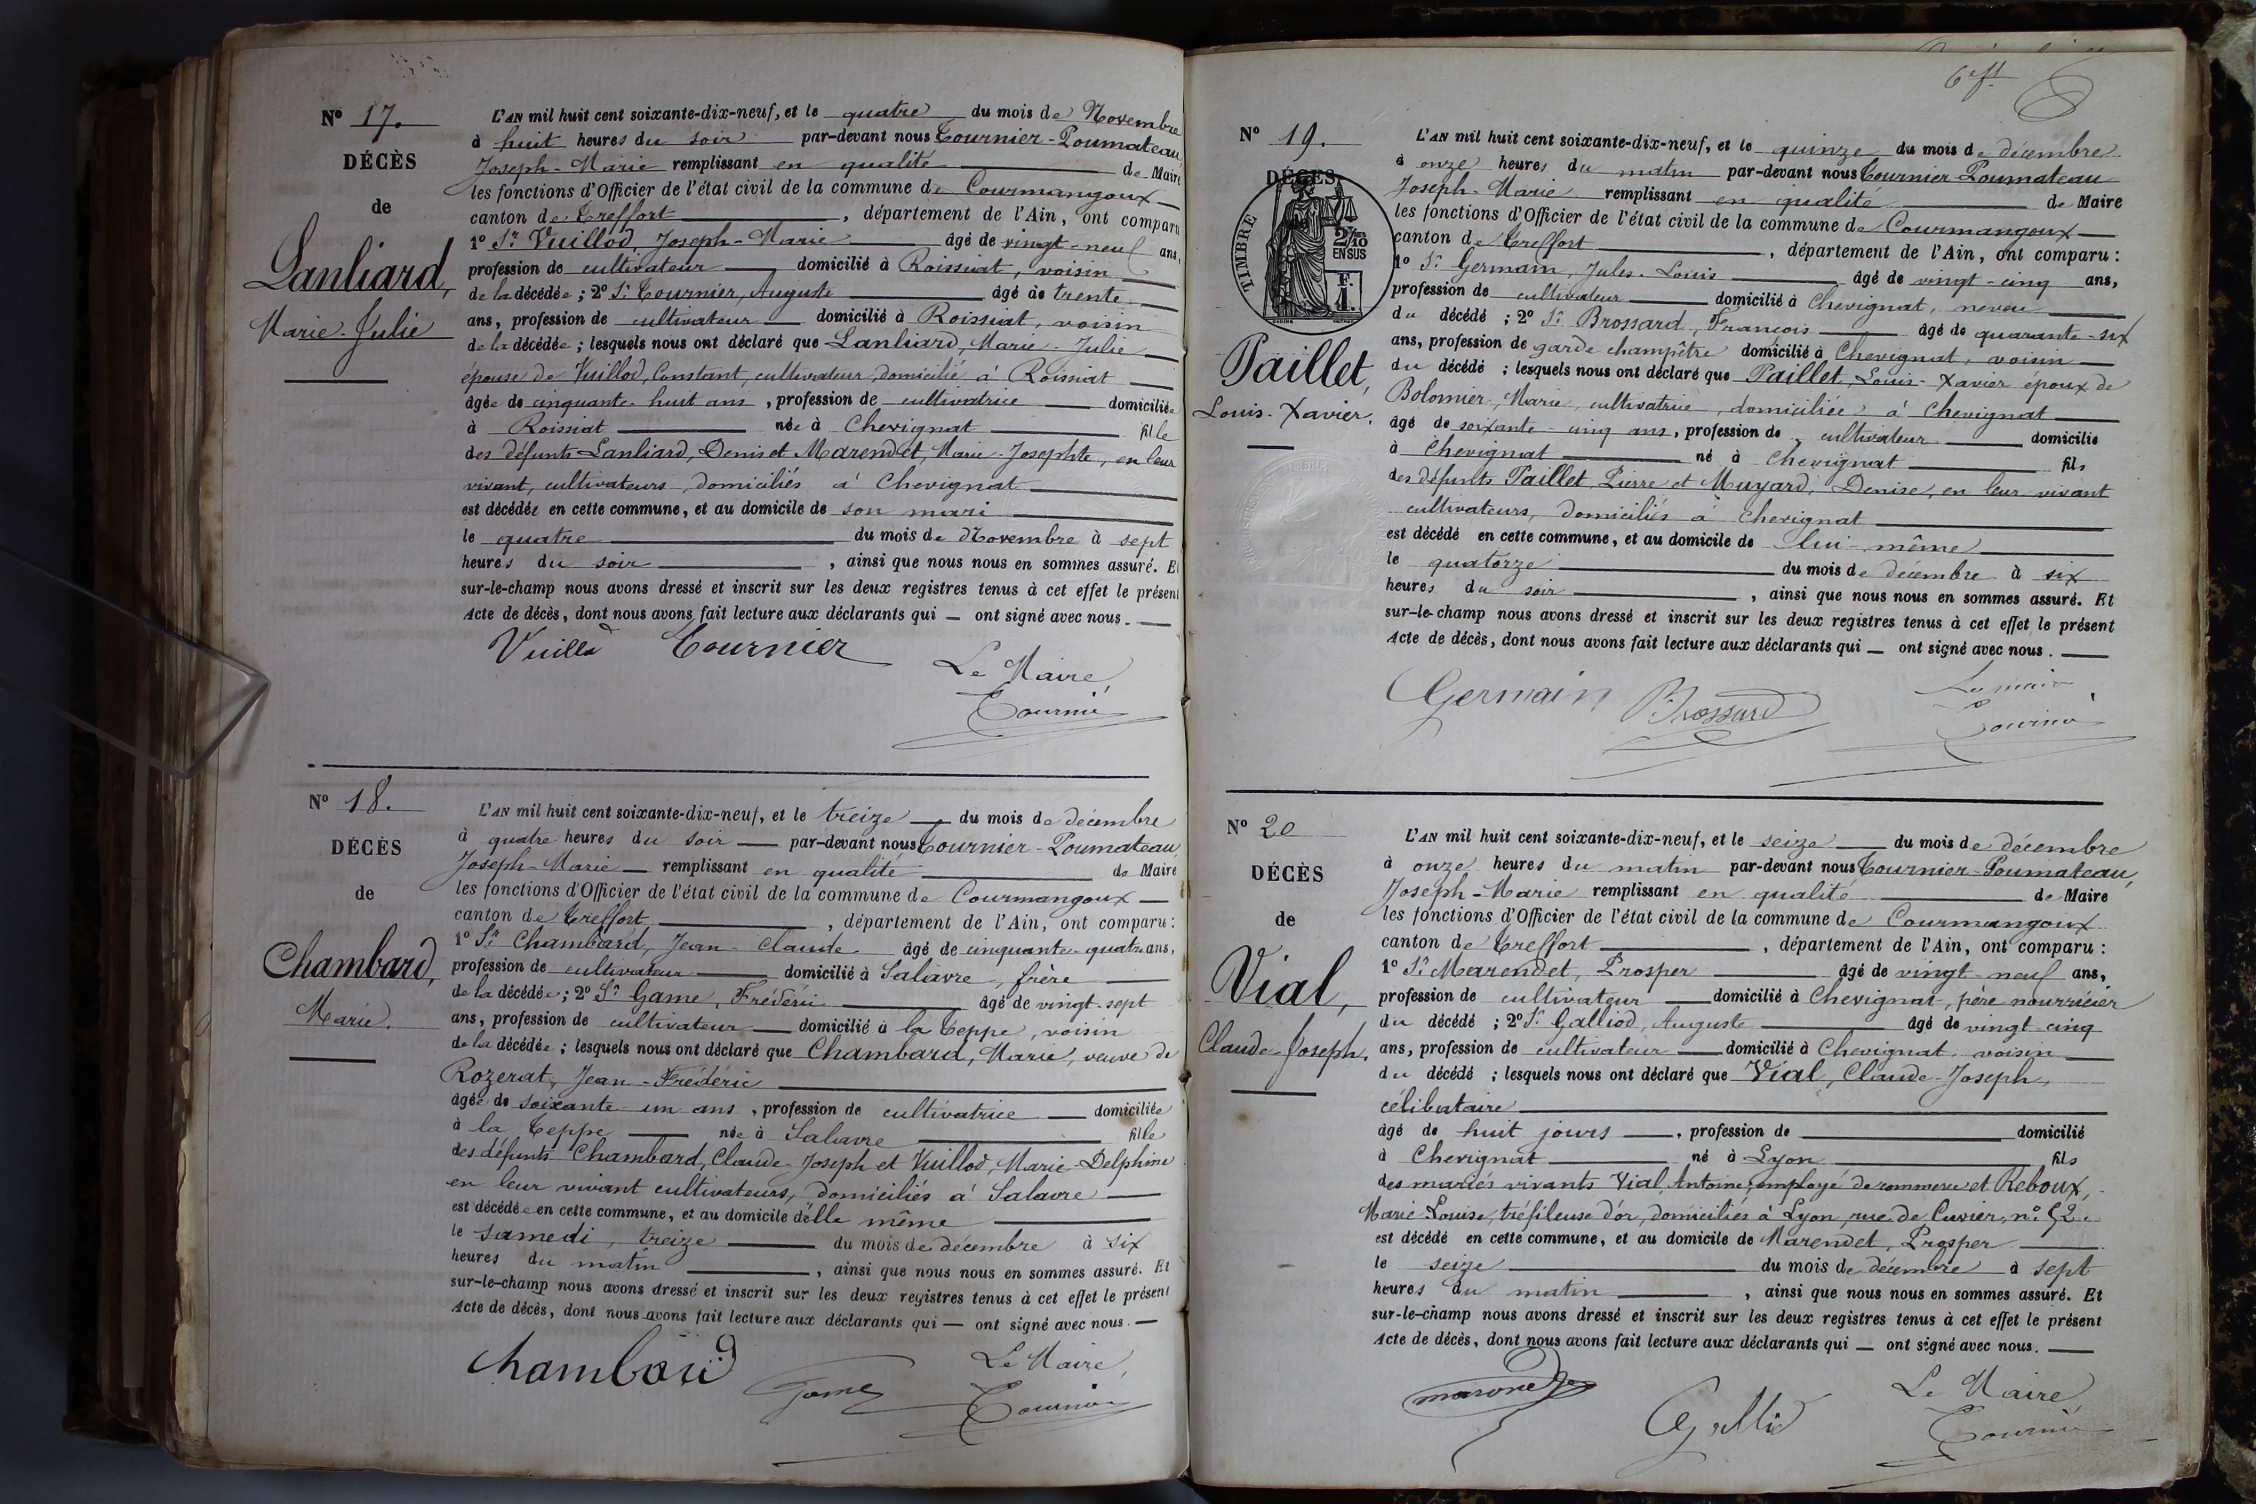 Nº 17.
DÉCÈS
de
Lanliard,
Marie-Julie
L'AN mil huit cent soixante-dix-neuf, et le quatre du mois de Novembre
à huit heures du soir par-devant nous Tournier-Poumateau,
Joseph-Marie remplissant en qualité de Maire
les fonctions d'Officier de l'état civil de la commune de Courmangoux
canton de Treffort, département de l'Ain, ont comparu
1º Sr Vuillod, Joseph-Marie âgé de vingt-neuf ans,
profession de cultivateur domicilié à Roissiat, voisin
de la décédée ; 2º Sr Tournier, Auguste âgé de trente
ans, profession de cultivateur domicilié à Roissiat, voisin
de la décédée ; lesquels nous ont déclaré que Lanliard, Marie-Julie
épouse de Vuillod, Constant, cultivateur, domicilié à Roissiat
âgée de cinquante-huit ans, profession de cultivatrice domiciliée
à Roissiat née à Chevignat fille
des défunts Lanliard, Denis et Marendet, Marie-Josephte, en leur
vivant, cultivateurs, domiciliés à Chevignat
est décédée en cette commune, et au domicile de son mari
le quatre du mois de Novembre à sept
heures du soir, ainsi que nous nous en sommes assuré. Et
sur-le-champ nous avons dressé et inscrit sur les deux registres tenus à cet effet le présent
Acte de décès, dont nous avons fait lecture aux déclarants qui — ont signé avec nous.
Vuillod Tournier
Le Maire,
Tournier
Nº 18.
DÉCÈS
de
Chambard,
Marie.
L'AN mil huit cent soixante-dix-neuf, et le treize du mois de décembre
à quatre heures du soir par-devant nous Tournier-Poumateau,
Joseph-Marie remplissant en qualité de Maire
les fonctions d'Officier de l'état civil de la commune de Courmangoux
canton de Treffort, département de l'Ain, ont comparu :
1º Sr Chambard, Jean-Claude âgé de cinquante-quatre ans,
profession de cultivateur domicilié à Salavre, frère
de la décédée ; 2º Sr Game, Frédéric âgé de vingt-sept
ans, profession de cultivateur domicilié à la Teppe, voisin
de la décédée ; lesquels nous ont déclaré que Chambard, Marie, veuve de
Rozerat, Jean-Frédéric
âgée de soixante-un ans, profession de cultivatrice domiciliée
à la Teppe née à Salavre fille
des défunts Chambard, Claude-Joseph et Vuillod, Marie-Delphine
en leur vivant cultivateurs, domiciliés à Salavre
est décédée en cette commune, et au domicile d'elle même
le samedi, treize du mois de décembre à six
heures du matin, ainsi que nous nous en sommes assuré. Et
sur-le-champ nous avons dressé et inscrit sur les deux registres tenus à cet effet le présent
Acte de décès, dont nous avons fait lecture aux déclarants qui — ont signé avec nous.
Chambard Game
Le Maire,
Tournier
6e ft
Nº 19.
DÉCÈS
TIMBRE
2/10
EN SUS
F.
1.
Paillet,
Louis-Xavier.
L'AN mil huit cent soixante-dix-neuf, et le quinze du mois de décembre
à onze heures du matin par-devant nous Tournier-Poumateau
Joseph-Marie remplissant en qualité de Maire
les fonctions d'Officier de l'état civil de la commune de Courmangoux
canton de Treffort, département de l'Ain, ont comparu :
1º Sr Germain, Jules-Louis âgé de vingt-cinq ans,
profession de cultivateur domicilié à Chevignat, neveu
du décédé ; 2º Sr Brossard, François âgé de quarante-six
ans, profession de garde champêtre domicilié à Chevignat, voisin
du décédé ; lesquels nous ont déclaré que Paillet, Louis-Xavier époux de
Bolomier, Marie, cultivatrice, domiciliée à Chevignat
âgé de soixante-cinq ans, profession de cultivateur domicilié
à Chevignat né à Chevignat fils
des défunts Paillet, Pierre et Muyard, Denise, en leur vivant
cultivateurs, domiciliés à Chevignat
est décédé en cette commune, et au domicile de lui-même
le quatorze du mois de décembre à six
heures du soir, ainsi que nous nous en sommes assuré. Et
sur-le-champ nous avons dressé et inscrit sur les deux registres tenus à cet effet le présent
Acte de décès, dont nous avons fait lecture aux déclarants qui — ont signé avec nous.
Germain Brossard
Le maire,
Tournier
Nº 20
DÉCÈS
de
Vial,
Claude-Joseph.
L'AN mil huit cent soixante-dix-neuf, et le seize du mois de décembre
à onze heures du matin par-devant nous Tournier-Poumateau,
Joseph-Marie remplissant en qualité de Maire
les fonctions d'Officier de l'état civil de la commune de Courmangoux
canton de Treffort, département de l'Ain, ont comparu :
1º Sr Marendet, Prosper âgé de vingt-neuf ans,
profession de cultivateur domicilié à Chevignat, père nourricier
du décédé ; 2º Sr Galliod, Auguste âgé de vingt-cinq
ans, profession de cultivateur domicilié à Chevignat, voisin
du décédé ; lesquels nous ont déclaré que Vial, Claude-Joseph,
célibataire
âgé de huit jours, profession de domicilié
à Chevignat né à Lyon fils
des mariés vivants Vial, Antoine, employé de commerce et Reboux,
Marie-Louise, tréfileuse d'or, domiciliés à Lyon, rue de Cuvier, nº 52.
est décédé en cette commune, et au domicile de Marendet, Prosper
le seize du mois de décembre à sept
heures du matin, ainsi que nous nous en sommes assuré. Et
sur-le-champ nous avons dressé et inscrit sur les deux registres tenus à cet effet le présent
Acte de décès, dont nous avons fait lecture aux déclarants qui — ont signé avec nous.
Galliod
Le Maire
Tournier